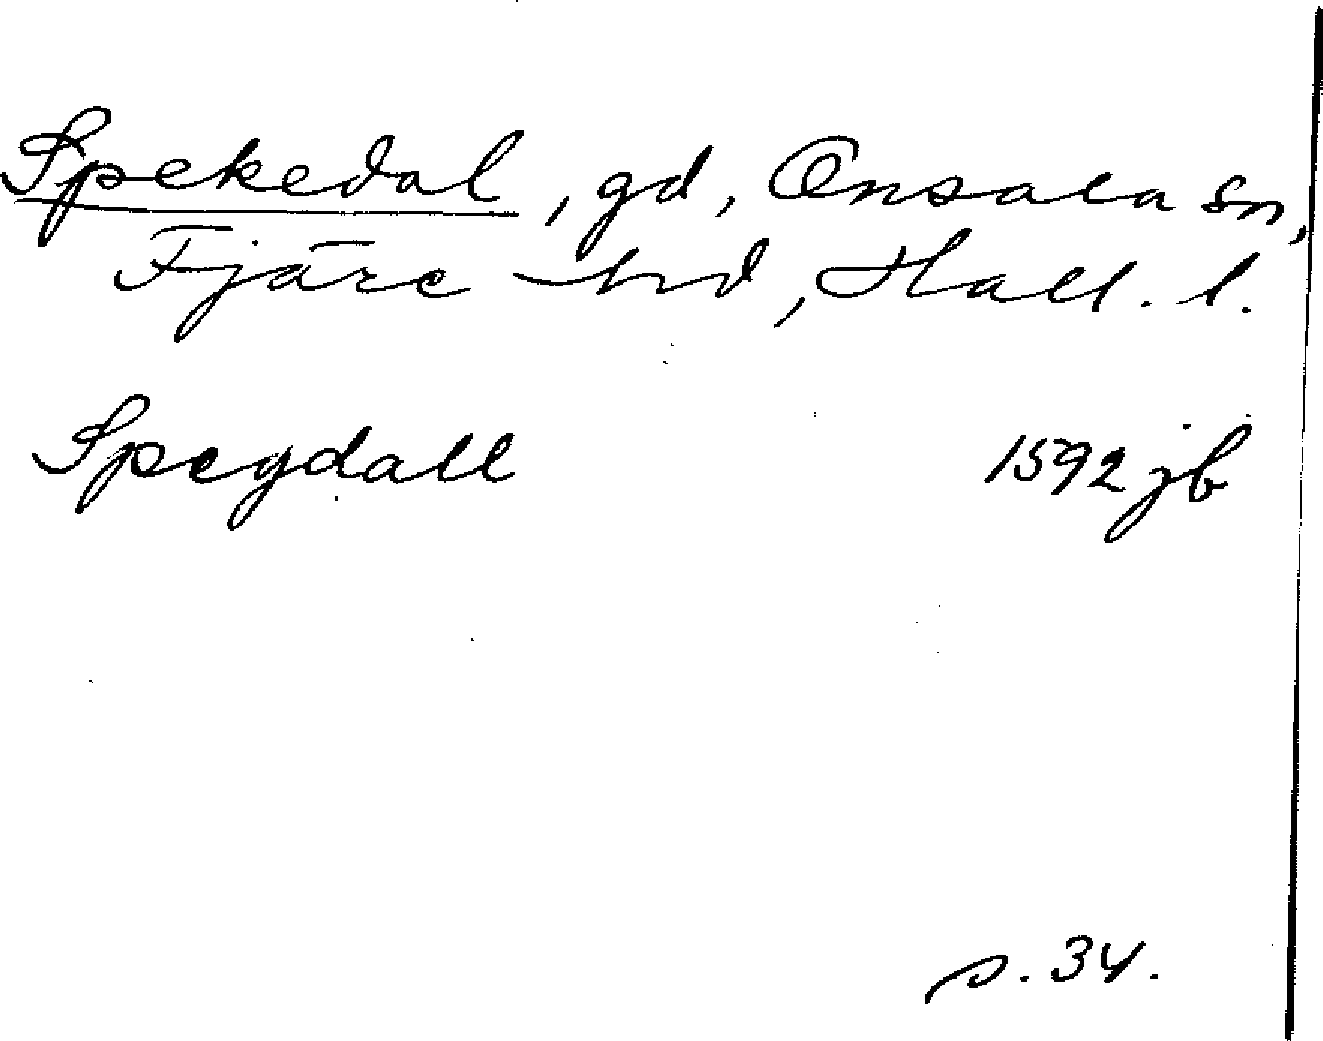 Spekedal, gd, Onsala sn,
Fjäre hd, Hall. l.
Spegdall 1592 jb
s. 34.